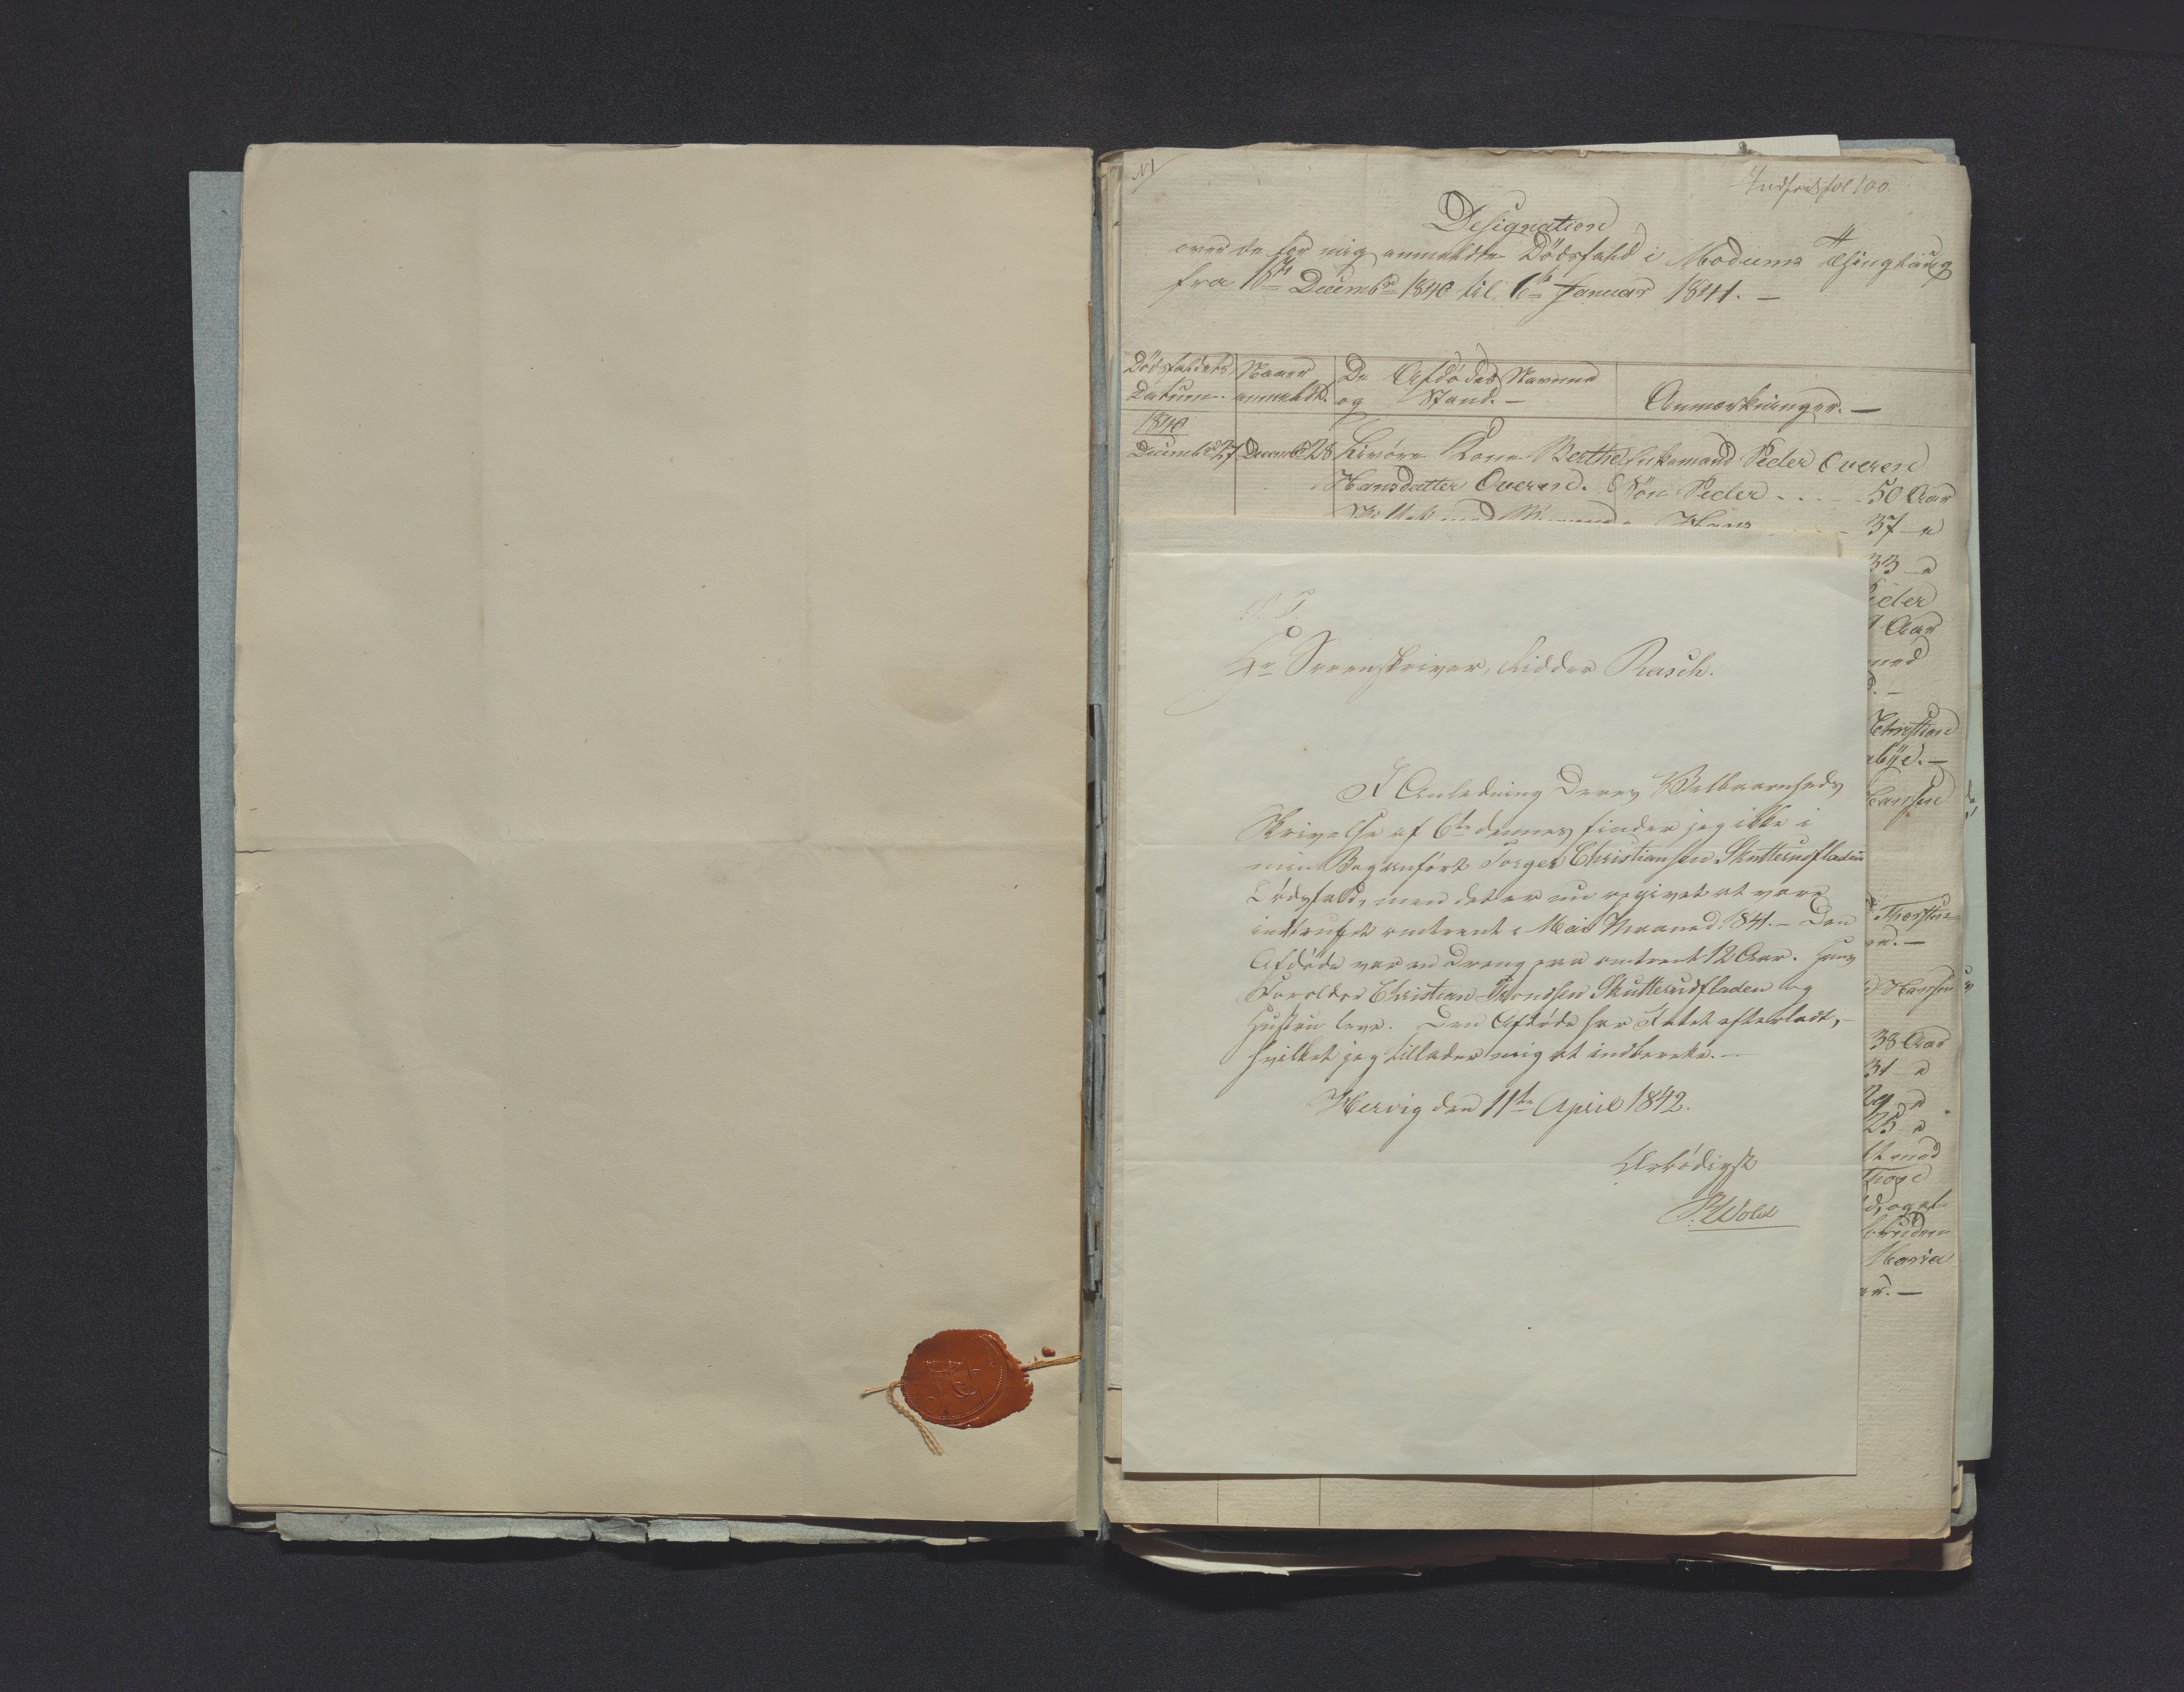 N1
Designation
over de for mig anmeldte Dödsfald i Modums Thinglaug
fra 1ste Decembr 1840 til 6te Januar 1841. —
Dödsfaldets Datum.
Naar anmeldt.
De Afdödes Navne og Stand. —
Anmærkninger. —
1840
Decembr 27 Decembr 28 Kone Berthe Enkemand Peder Overen
Hansdatter Overen. Sön Peder . . . . 50 Aar
Hans . . . 37 —
33 —
Peder
Aar
Christian
Hansen
Thorsten
Hansen
38 Aar
31 —
25 —
og et
Maria
S. T.
Hr Sorenskriver, Ridder Rasch.
I Anledning Deres Velbaarenheds
Skrivelse af 6te dennes finder jeg ikke i
min Bog anført Torger Christiansen Skutterudfladen
Dödsfald, men det er nu opgivet at være
indtruffet omtrent i Mai Maaned 1841. — Den
Afdöde var en Dreng paa omtrent 12 Aar. Hans
Forældre Christian Trondsen Skutterudfladen og
Hustru leve. Den Afdöde har Intet efterladt, —
hvilket jeg tillader mig at indberette. —
Hervig den 11te April 1842.
Ærbödigst
Wold